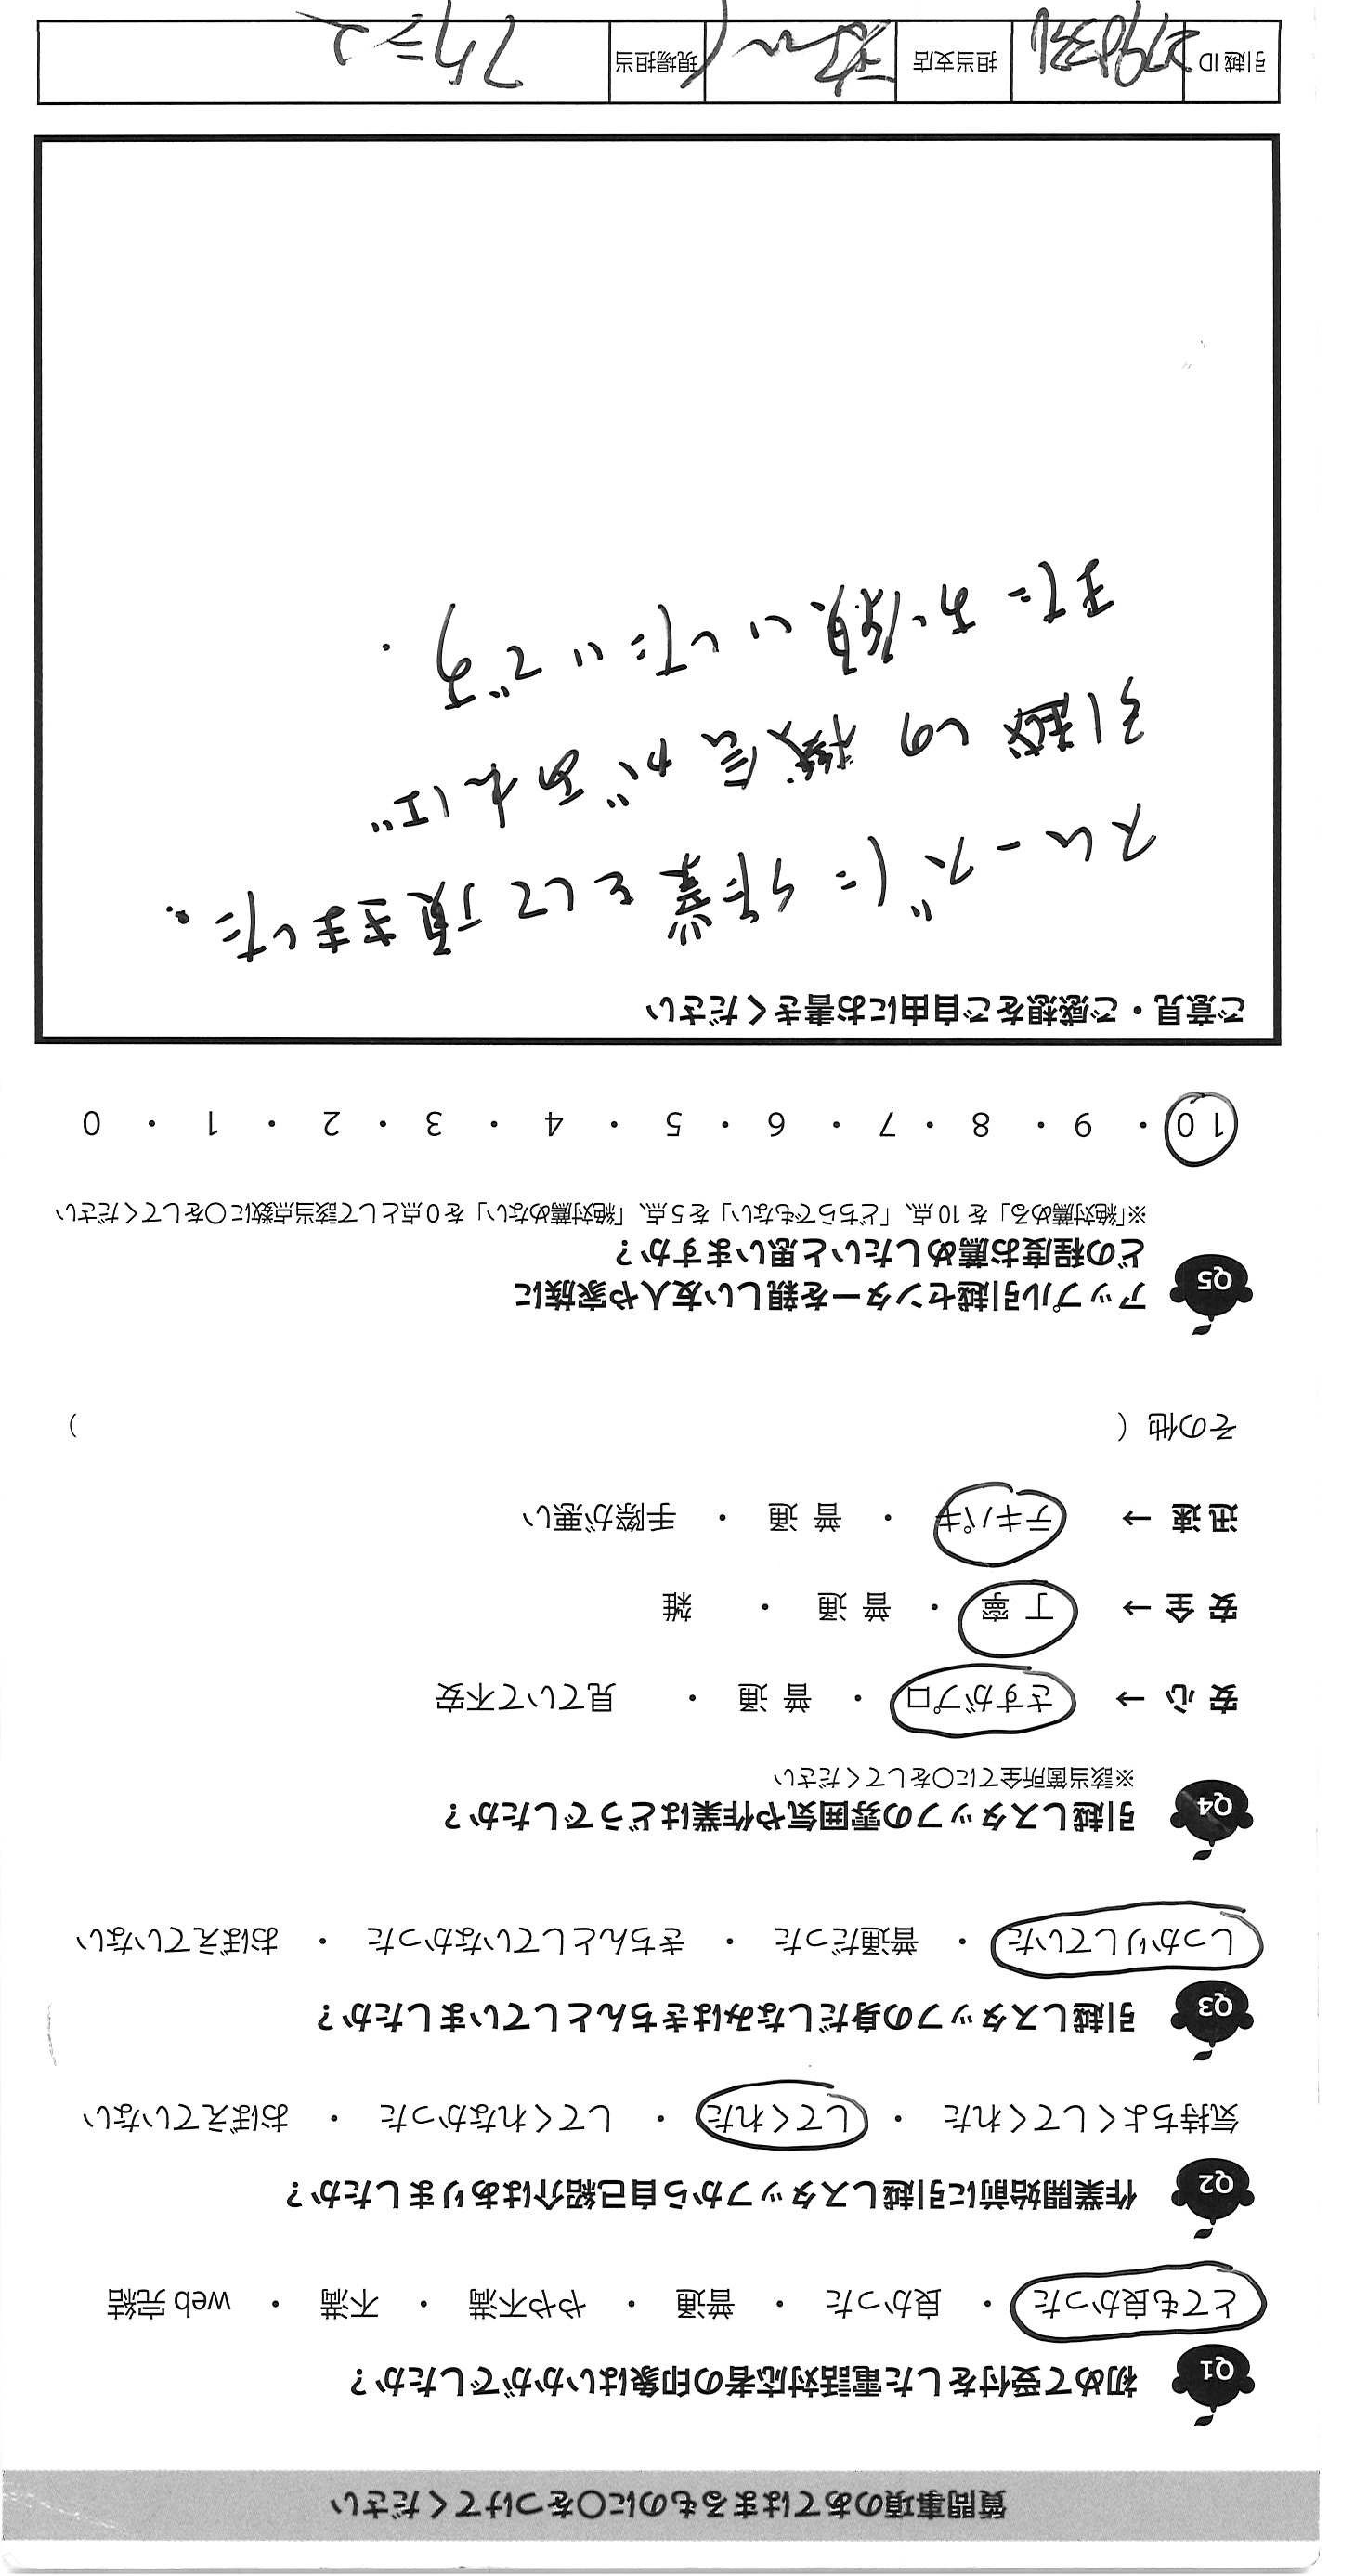 質問事項のあてはまるものに○をつけてください
Q1 初めて受付をした電話対応者の印象はいかがでしたか？
とても良かった ・ 良かった ・ 普通 ・ やや不満 ・ 不満 ・ web 完結
Q2 作業開始前に引越しスタッフから自己紹介はありましたか？
気持ちよくしてくれた ・ してくれた ・ してくれなかった ・ おぼえていない
Q3 引越しスタッフの身だしなみはきちんとしていましたか？
しっかりしていた ・ 普通だった ・ きちんとしていなかった ・ おぼえていない
Q4 引越しスタッフの雰囲気や作業はどうでしたか？
※該当箇所全てに○をしてください
安 心 → さすがプロ ・ 普 通 ・ 見ていて不安
安 全 → 丁 寧 ・ 普 通 ・ 雑
迅 速 → テキパキ ・ 普 通 ・ 手際が悪い
その他（ ）
Q5 アップル引越センターを親しい友人や家族に
どの程度お薦めしたいと思いますか？
※「絶対薦める」を 10 点、「どちらでもない」を 5 点、「絶対薦めない」を 0 点として該当点数に○をしてください
10 ・ 9 ・ 8 ・ 7 ・ 6 ・ 5 ・ 4 ・ 3 ・ 2 ・ 1 ・ 0
ご意見・ご感想をご自由にお書きください
スムーズに作業をして頂きました。
引越しの機会があれば
またお願いしたいです．
引越 ID 担当支店 現場担当